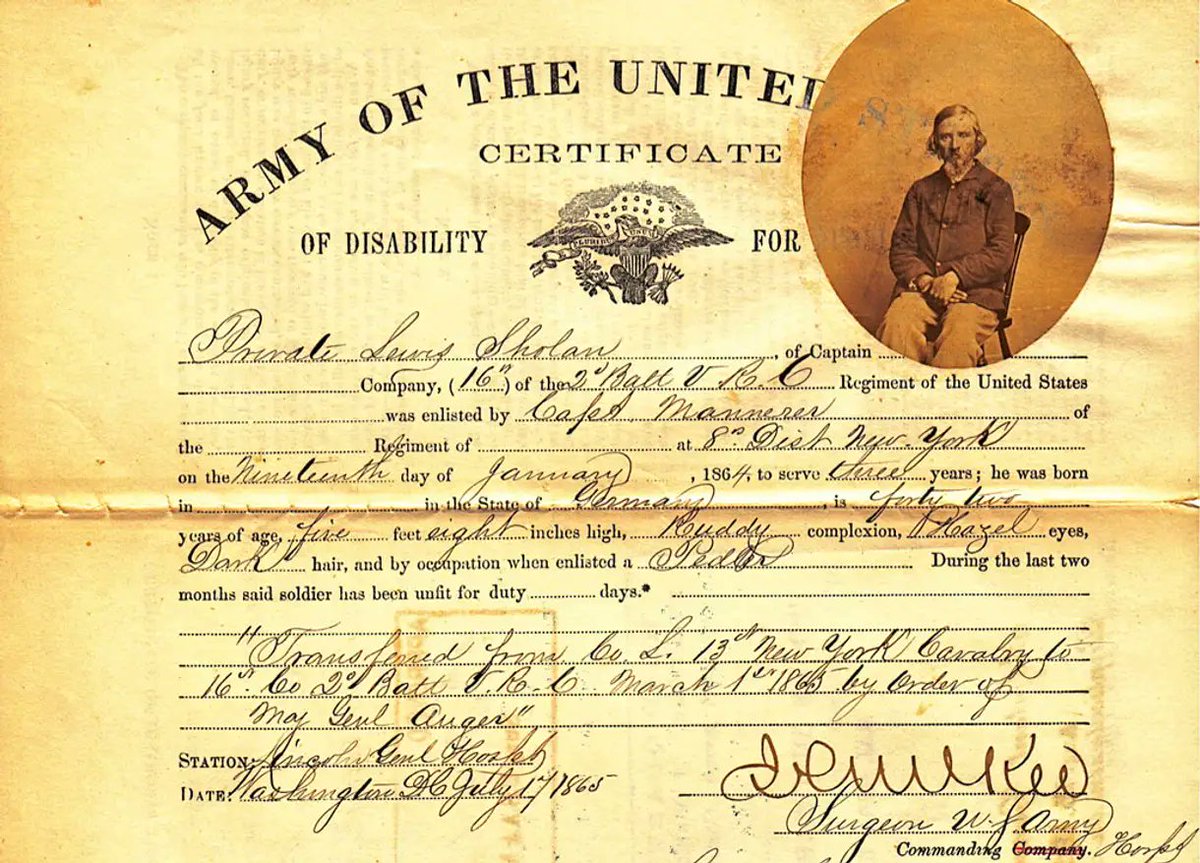 ARMY OF THE UNITED S
CERTIFICATE
OF DISABILITY FOR
Private Lewis Sholan, of Captain
Company, (16th) of the 2d Batt V R C Regiment of the United States
was enlisted by Capt Mannerer of
the Regiment of at 8th Dist New-York
on the Nineteenth day of January, 1864, to serve three years; he was born
in in the State of Germany, is forty two
years of age, five feet eight inches high, Ruddy complexion, Hazel eyes,
Dark hair, and by occupation when enlisted a Pedler During the last two
months said soldier has been unfit for duty days.*
"Transferred from Co. L. 13th New York Cavalry to
16th Co 2d Batt V.R.C. March 1st 1865 by Order of
Maj Genl Auger"
STATION: Lincoln Genl Hospt
DATE: Washington DC July 17 1865
Surgeon U S Army
Commanding Company. Hospt